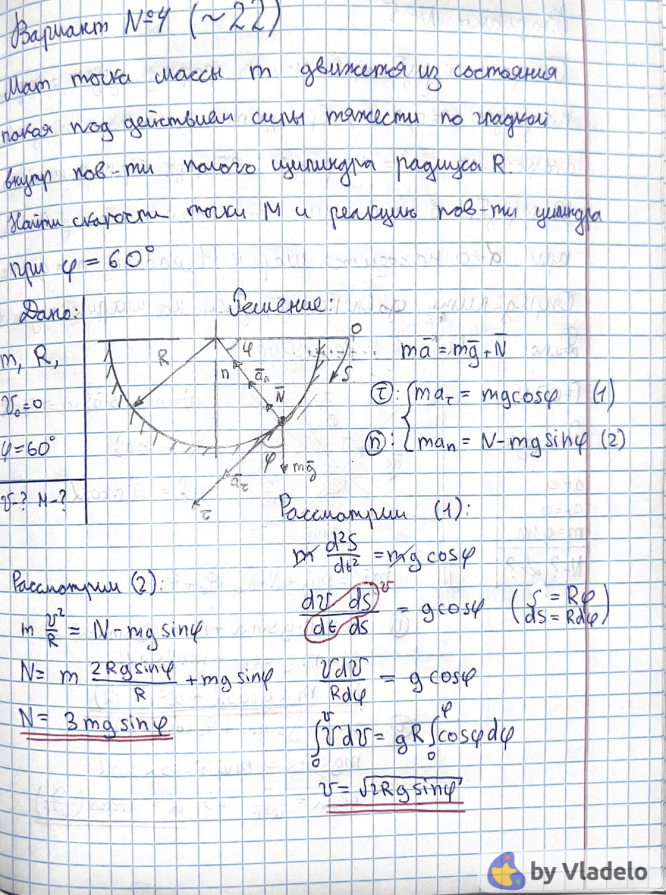 Вариант №4 (~22)
Мат точка массы m движется из состояния
покоя под действием силы тяжести по гладкой
внутр пов-ти полого цилиндра радиуса R.
Найти скорости точки M и реакцию пов-ти цилиндра
при φ = 60°
Дано:
m, R,
v₀=0
φ=60°
v-? N-?
Решение:
R
φ
O
n
a̅ₙ
N̅
S
φ
mg̅
a̅τ
τ
ma̅ = mg̅ + N̅
τ: { maτ = mgcosφ (1)
n: { maₙ = N-mgsinφ (2)
Рассмотрим (1):
m d²S/dt² = mg cosφ
dv ds / dt ds = gcosφ (S = Rφ
v
ds = Rdφ)
vdv / Rdφ = g cosφ
∫₀ᵛ vdv = gR ∫₀ᵠ cosφdφ
v = √2Rg sinφ
Рассмотрим (2):
m v²/R = N-mg sinφ
N = m 2Rg sinφ / R + mg sinφ
N = 3mg sinφ
by Vladelo